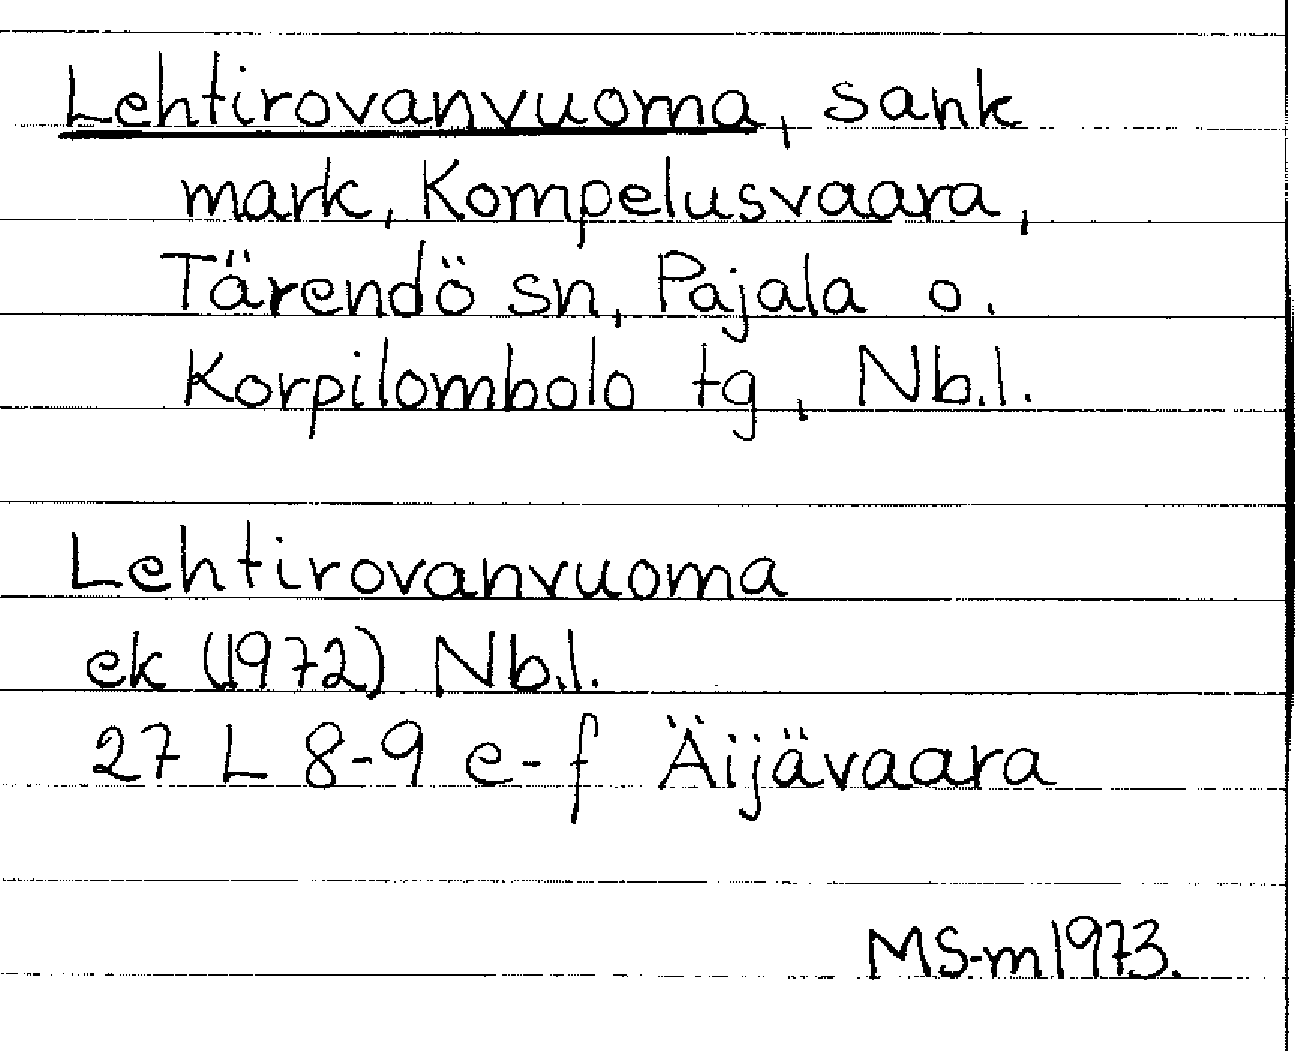 Lehtirovanvuoma, sank
mark, Kompelusvaara,
Tärendö sn, Pajala o.
Korpilombolo tg, Nb.l.
Lehtirovanvuoma
ek (1972) Nb.l.
27 L 8-9 e-f Äijävaara
MS-m1973.